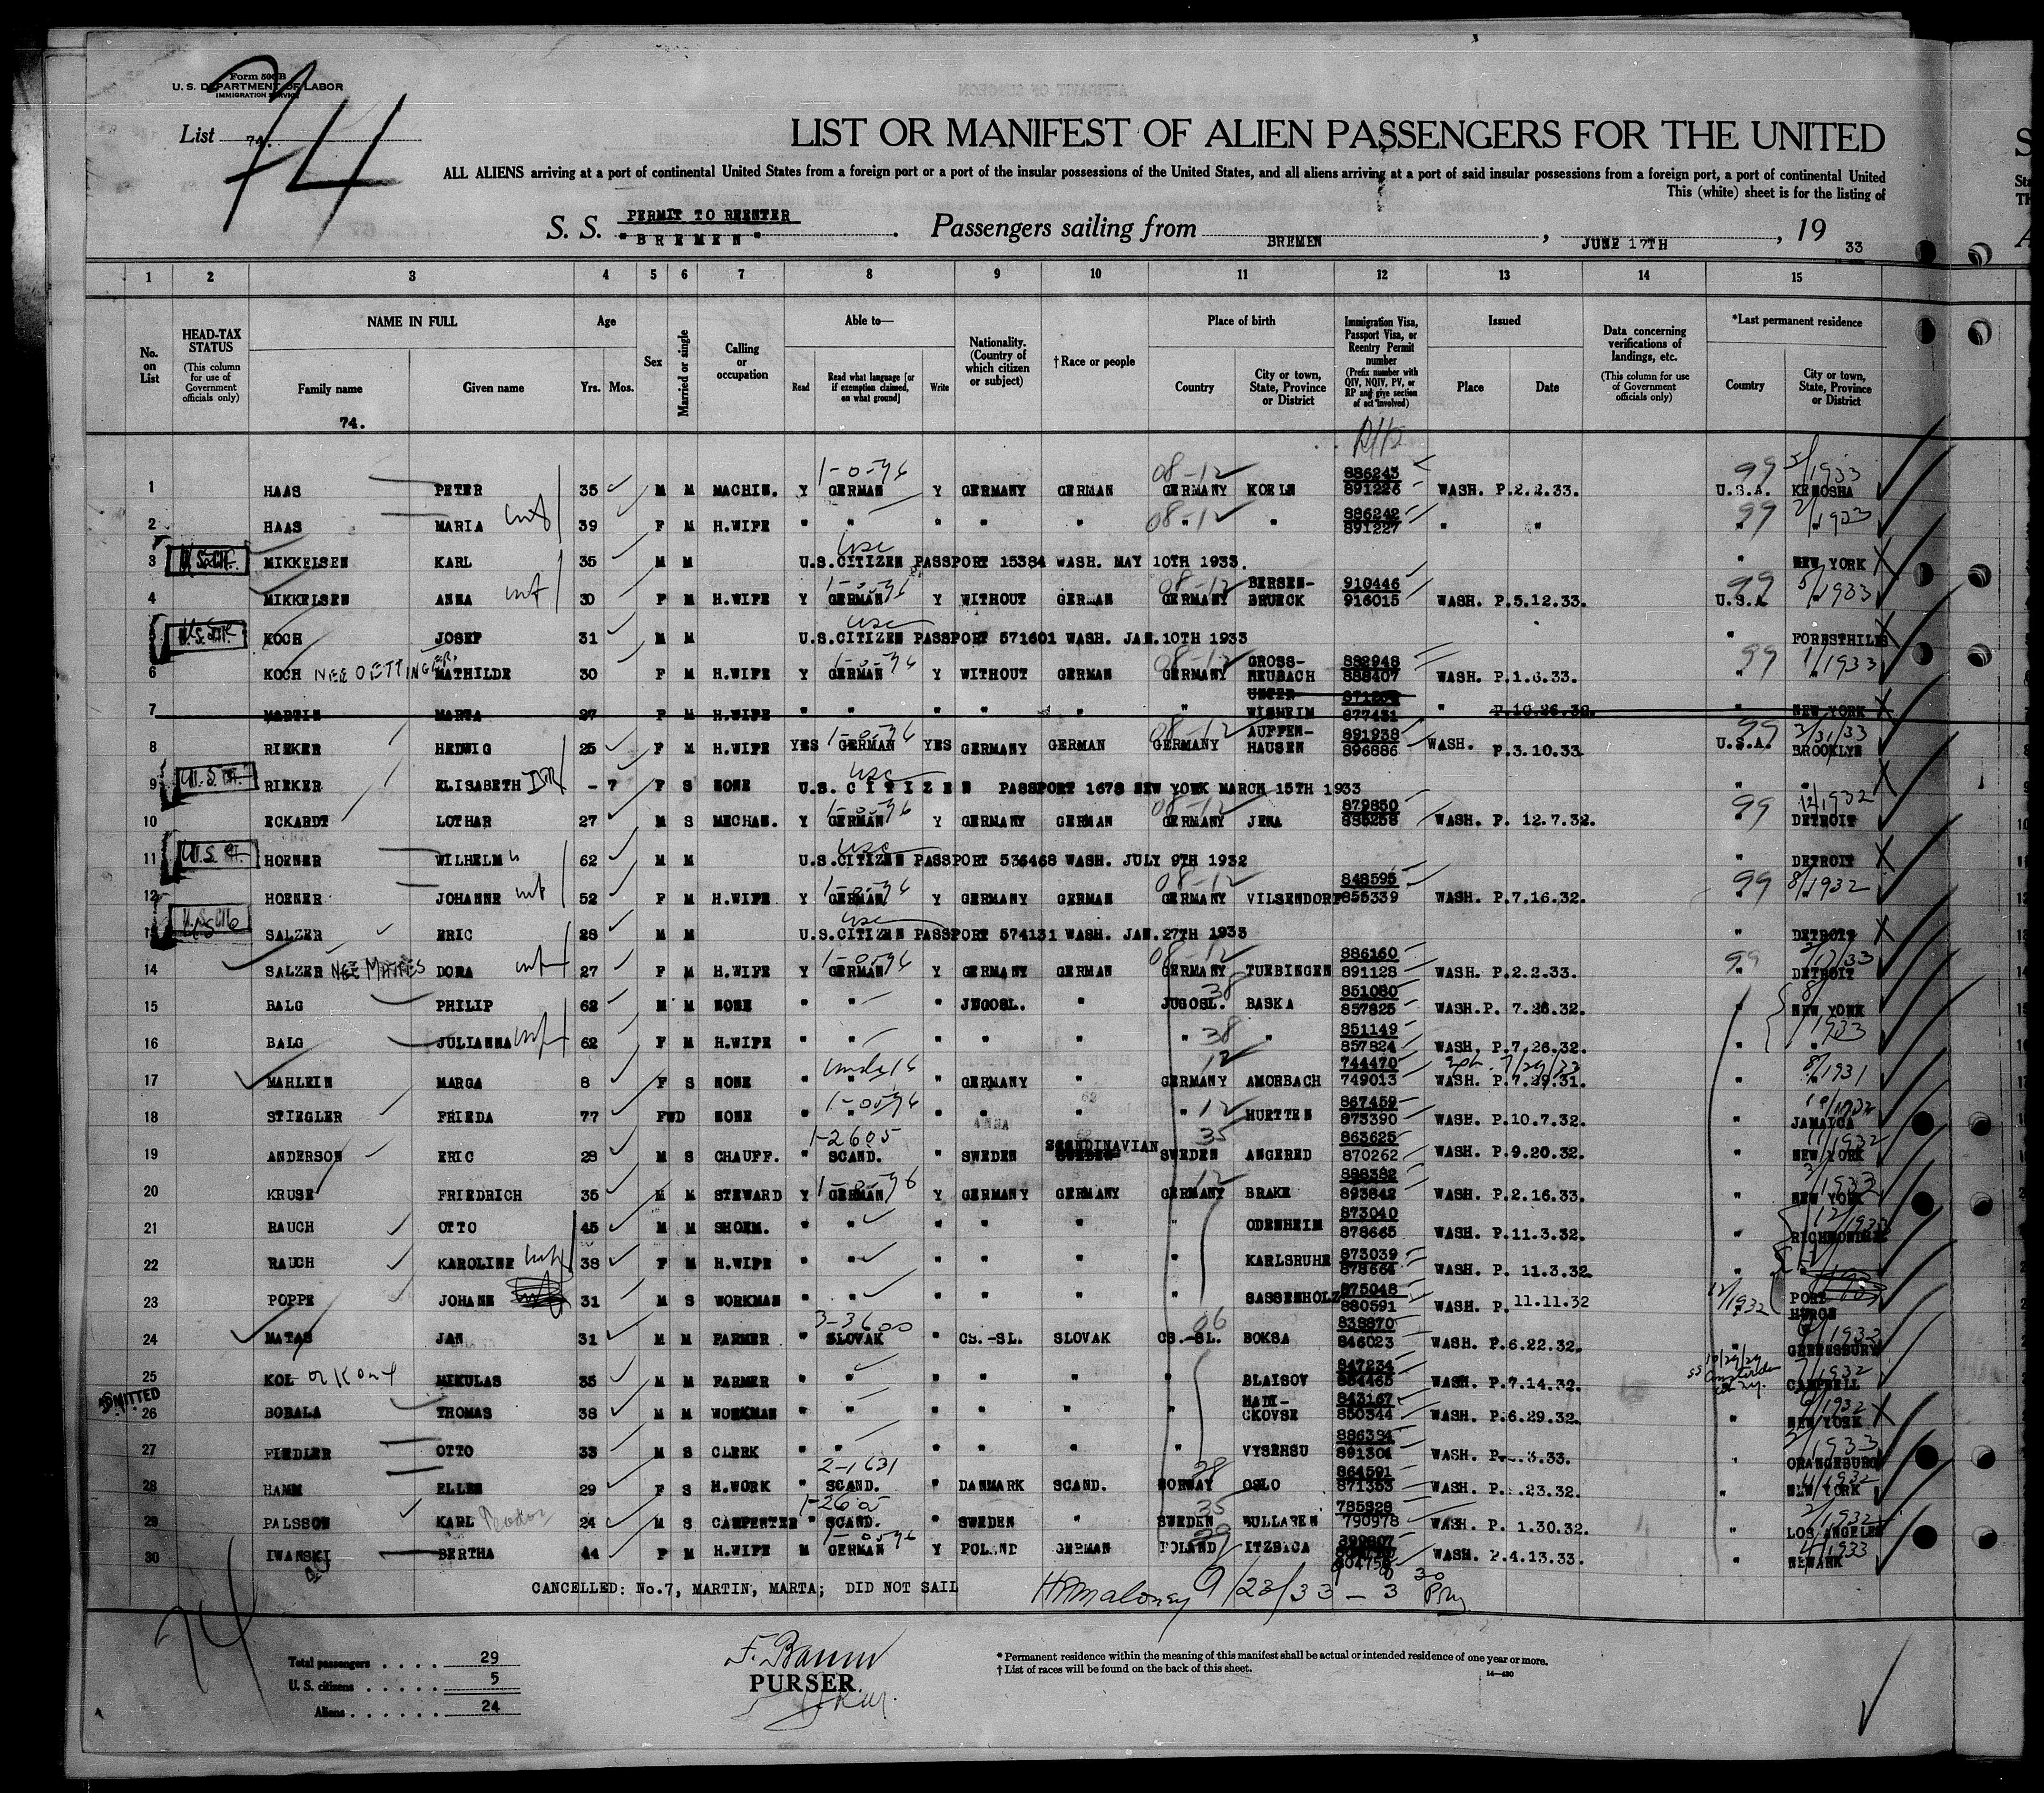 Form 500 B
U. S. DEPARTMENT OF LABOR
IMMIGRATION SERVICE
74
List 74.
LIST OR MANIFEST OF ALIEN PASSENGERS FOR THE UNITED
ALL ALIENS arriving at a port of continental United States from a foreign port or a port of the insular possessions of the United States, and all aliens arriving at a port of said insular possessions from a foreign port, a port of continental United
This (white) sheet is for the listing of
PERMIT TO REENTER
S. S. "BREMEN". Passengers sailing from BREMEN, JUNE 17TH, 19 33
1 2 3 4 5 6 7 8 9 10 11 12 13 14 15
No. on List
HEAD-TAX STATUS (This column for use of Government officials only)
NAME IN FULL Family name Given name
Age Yrs. Mos.
Sex
Married or single
Calling or occupation
Able to— Read Read what language [or if exemption claimed, on what ground] Write
Nationality. (Country of which citizen or subject)
†Race or people
Place of birth Country City or town, State, Province or District
Immigration Visa, Passport Visa, or Reentry Permit number (Prefix number with QIV, NQIV, PV, or RP and give section of act involved)
Issued Place Date
Data concerning verifications of landings, etc. (This column for use of Government officials only)
*Last permanent residence Country City or town, State, Province or District
74.
1 HAAS PETER 35 M M MACHIN. Y GERMAN Y GERMANY GERMAN GERMANY KOELN 886243 891226 WASH. P.2.2.33. U.S.A. KENOSHA 1-0-96 08-12 99 5/1933
2 HAAS MARIA 39 F M H.WIFE " " " " " " " 886242 891227 " " " 08-12 99 1933
3 MIKKELSEN KARL 35 M M U.S.CITIZEN PASSPORT 15384 WASH. MAY 10TH 1933. " NEW YORK usc
4 MIKKELSEN ANNA 30 F M H.WIFE Y GERMAN Y WITHOUT GERMAN GERMANY BERSEN-BRUECK 910446 916015 WASH. P.5.12.33. U.S.A. " 08-12 99 5/1933
5 KOCH JOSEF 31 M M U.S.CITIZEN PASSPORT 571601 WASH. JAN.10TH 1933 " FORESTHILLS usc
6 KOCH NEE OETTINGER MATHILDE 30 F M H.WIFE Y GERMAN Y WITHOUT GERMAN GERMANY GROSS-HEUBACH 882948 888407 WASH. P.1.6.33. " " 08-12 99 1/1933
7 MARTIN MARTA 27 F M H.WIFE " " " " " " 877431 " P.10.26.32. " NEW YORK
8 RIEKER HEDWIG 25 F M H.WIFE YES GERMAN YES GERMANY GERMAN GERMANY AUFFEN-HAUSEN 891938 896886 WASH. P.3.10.33 U.S.A. BROOKLYN 08-12 99 3/31/33
9 RIEKER ELISABETH - 7 F S NONE U.S. CITIZEN PASSPORT 1678 NEW YORK MARCH 15TH 1933 " " usc
10 ECKARDT LOTHAR 27 M S MECHAN. Y GERMAN Y GERMANY GERMAN GERMANY JENA 879850 885258 WASH. P. 12.7.32. " DETROIT 08-12 99 12/1932
11 HORNER WILHELM 62 M M U.S.CITIZEN PASSPORT 536468 WASH. JULY 9TH 1932 " DETROIT usc
12 HORNER JOHANNE 52 F M H.WIFE Y GERMAN Y GERMANY GERMAN GERMANY VILSENDORF 848595 855339 WASH. P.7.16.32. " " 08-12 99 8/1932
13 SALZER ERIC 28 M M U.S.CITIZEN PASSPORT 574131 WASH. JAN.27TH 1933 " DETROIT usc
14 SALZER NEE DORA 27 F M H.WIFE Y GERMAN Y GERMANY GERMAN GERMANY TUEBINGEN 886160 891128 WASH. P.2.2.33. " DETROIT 08-12 99
15 BALG PHILIP 62 M M NONE " " " JUGOSL. " JUGOSL. BASKA 851080 857825 WASH.P. 7.26.32. " NEW YORK 38
16 BALG JULIANNA 62 F M H.WIFE " " " " " " " 851149 857824 WASH. P.7.26.32. " " 38 1933
17 MAHLEIN MARGA 8 F S NONE " " " GERMANY " GERMANY AMORBACH 744470 749013 WASH. P.7.29.31. " " under 16 12 8/1931
18 STIEGLER FRIEDA 77 F WD NONE " " " " " " HUETTEN 867459 873390 WASH. P.10.7.32. " JAMAICA 12
19 ANDERSON ERIC 28 M S CHAUFF. " SCAND. " SWEDEN SCANDINAVIAN SWEDEN ANGERED 863625 870262 WASH. P.9.20.32. " NEW YORK 1-2605 35 11/1932
20 KRUSE FRIEDRICH 35 M M STEWARD Y GERMAN Y GERMANY GERMANY GERMANY BRAKE 888382 893842 WASH. P.2.16.33. " NEW YORK 12 1933
21 RAUCH OTTO 45 M M SHOEM. " " " " " " ODENHEIM 873040 878665 WASH. P.11.3.32. "
22 RAUCH KAROLINE 38 F M H.WIFE " " " " " " KARLSRUHE 873039 878664 WASH. P. 11.3.32. " "
23 POPPE JOHANN 31 M S WORKMAN " " " " " " SASSENHOLZ 875048 880591 WASH. P. 11.11.32 " PORT HURON 12/1932
24 MATAS JAN 31 M M FARMER " SLOVAK " CS.-SL. SLOVAK CS.-SL. BOKSA 838870 846023 WASH. P.6.22.32. " GREENSBURY 3-3600 06
25 KOL or Kony MIKULAS 35 M M FARMER " " " " " " BLAISOV 847234 854465 WASH. P.7.14.32. CAMPBELL 7/1932
ADMITTED
26 BOBALA THOMAS 38 M M WORKMAN " " " " " " 843167 850344 WASH. P.6.29.32. " NEW YORK
27 FIEDLER OTTO 33 M S CLERK " " " " " " VYSERSU 886394 891304 WASH. " ORANGEBURG
28 HAMM ELLEN 29 F S H.WORK " SCAND. " DANMARK SCAND. NORWAY OSLO 864591 871353 WASH. P. .23.32. " NEW YORK 2-1631 28
29 PALSSON KARL 24 M S CARPENTER " SCAND. " SWEDEN " SWEDEN BULLAREN 785828 790978 WASH. P. 1.30.32. " LOS ANGELES 1-2605 35
30 IWANSKI BERTHA 44 F M H.WIFE M GERMAN Y POLAND GERMAN POLAND ITZBICA WASH. P.4.13.33. " NEWARK 4/1933
CANCELLED: No.7, MARTIN, MARTA; DID NOT SAIL
HMaloney 9/23/33 - 3
74
Total passengers . . . . 29
U. S. citizens . . . . . 5
Aliens . . . . . . 24
F. Baum
PURSER
* Permanent residence within the meaning of this manifest shall be actual or intended residence of one year or more.
† List of races will be found on the back of this sheet.
14—430